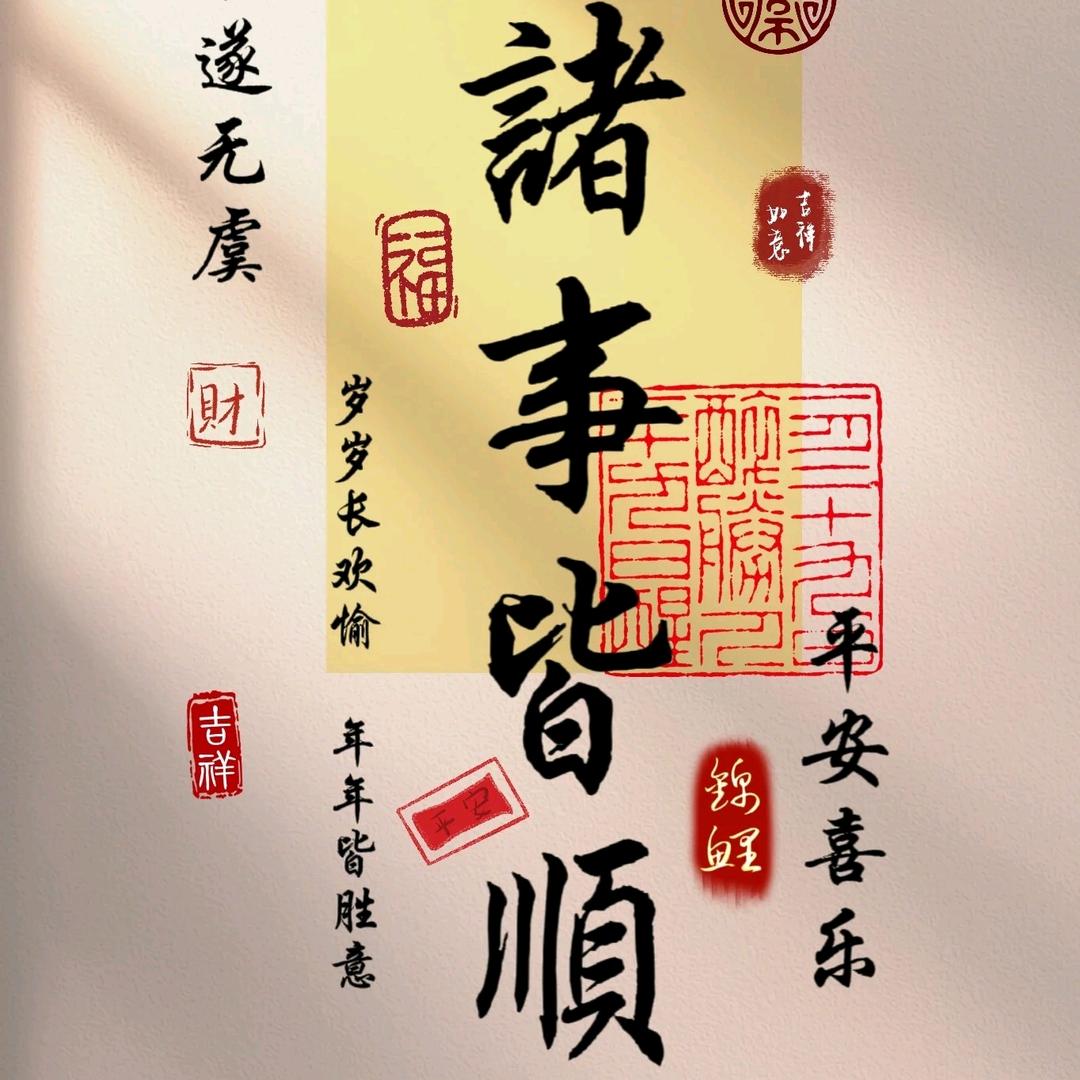 諸事皆順
平安喜乐
吉祥
如意
福
錦鲤
平安
岁岁长欢愉
年年皆胜意
遂无虞
財
吉祥